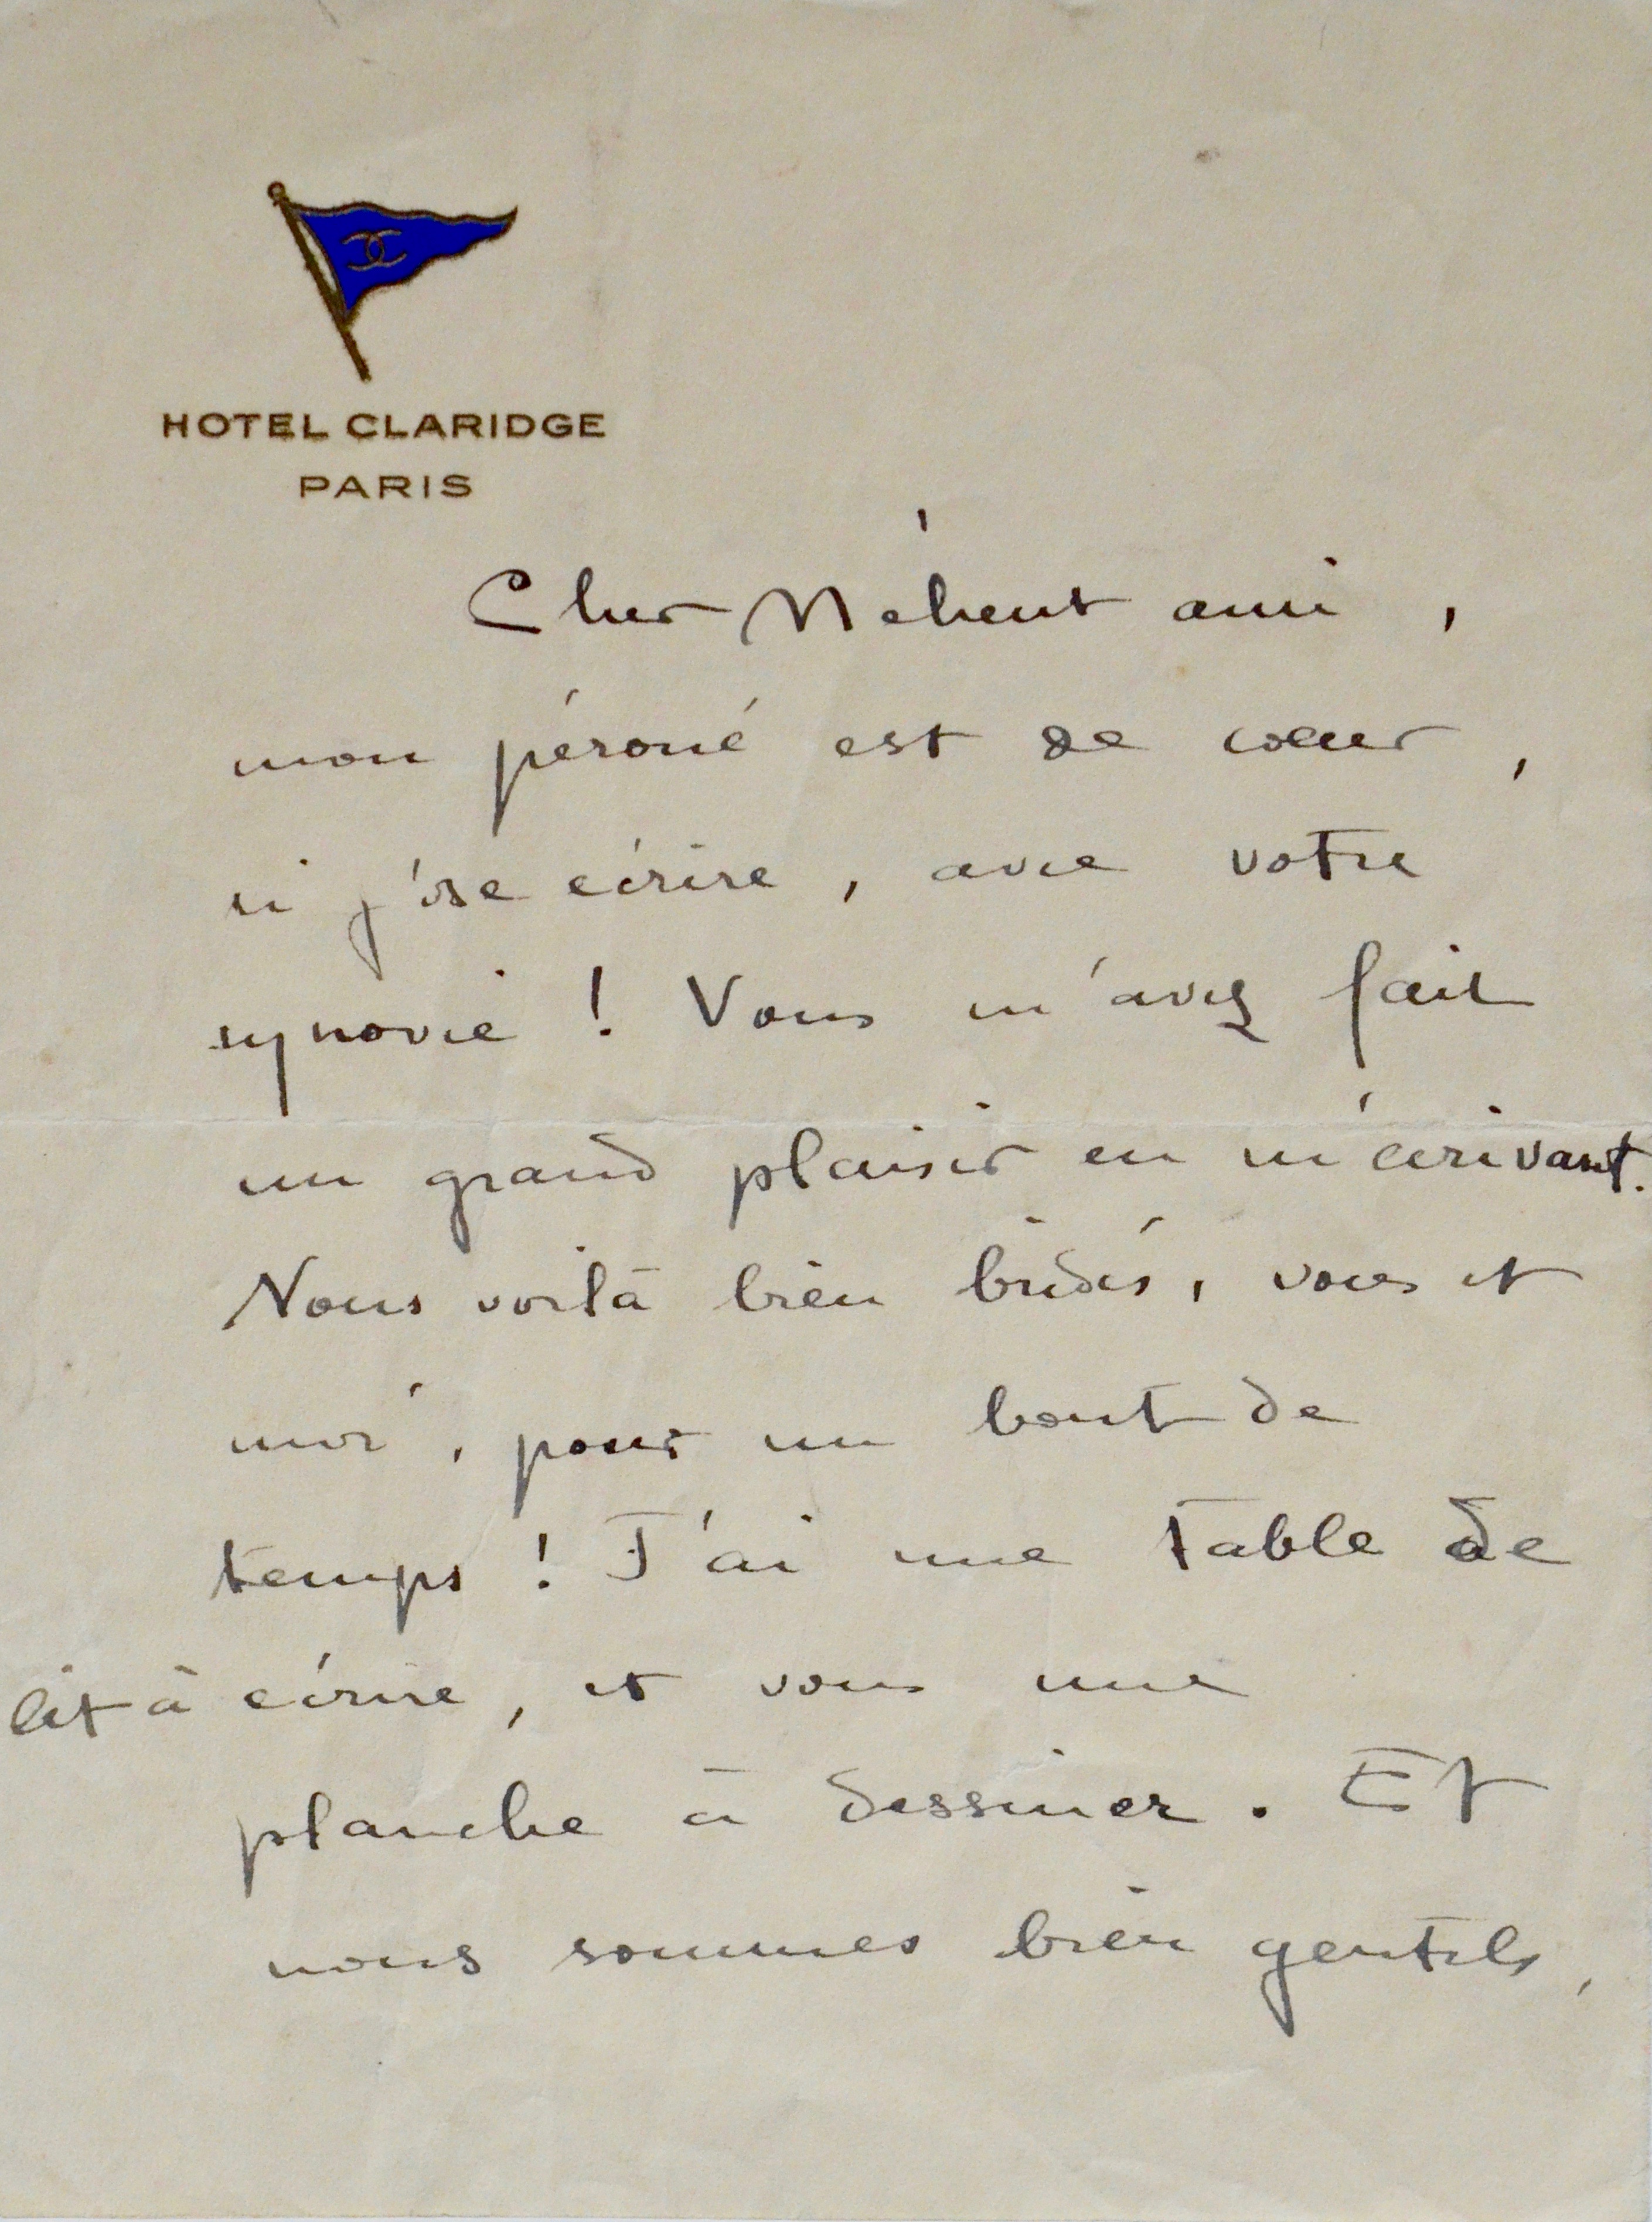 HOTEL CLARIDGE
PARIS
Cher Méheut ami,
mon péroné est de cœur,
si j'ose écrire, avec votre
synovie ! Vous m'avez fait
un grand plaisir en m'écrivant.
Nous voilà bien bridés, vous et
moi, pour un bout de
temps ! J'ai une table de
lit à écrire, et vous une
planche à dessiner. Et
nous sommes bien gentils,